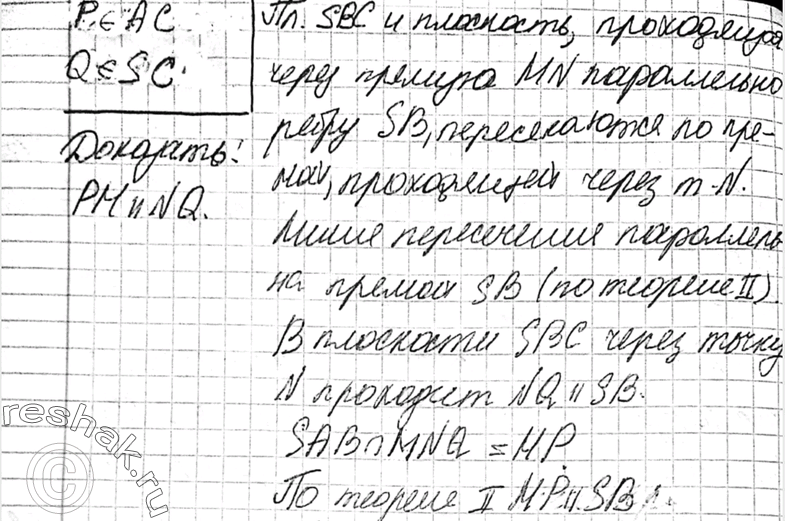 P ∈ AC
Q ∈ SC.
Доказать:
PM ıı NQ.
Пл. SBC и плоскость, проходящая
через прямую MN параллельно
ребру SB, пересекаются по пря-
мой, проходящей через т. N.
Линия пересечения параллель-
на прямой SB (по теореме II).
В плоскости SBC через точку
N проходит NQ ıı SB.
SAB ∩ MNQ = MP
По теореме II MP ıı SB
reshak.ru
©